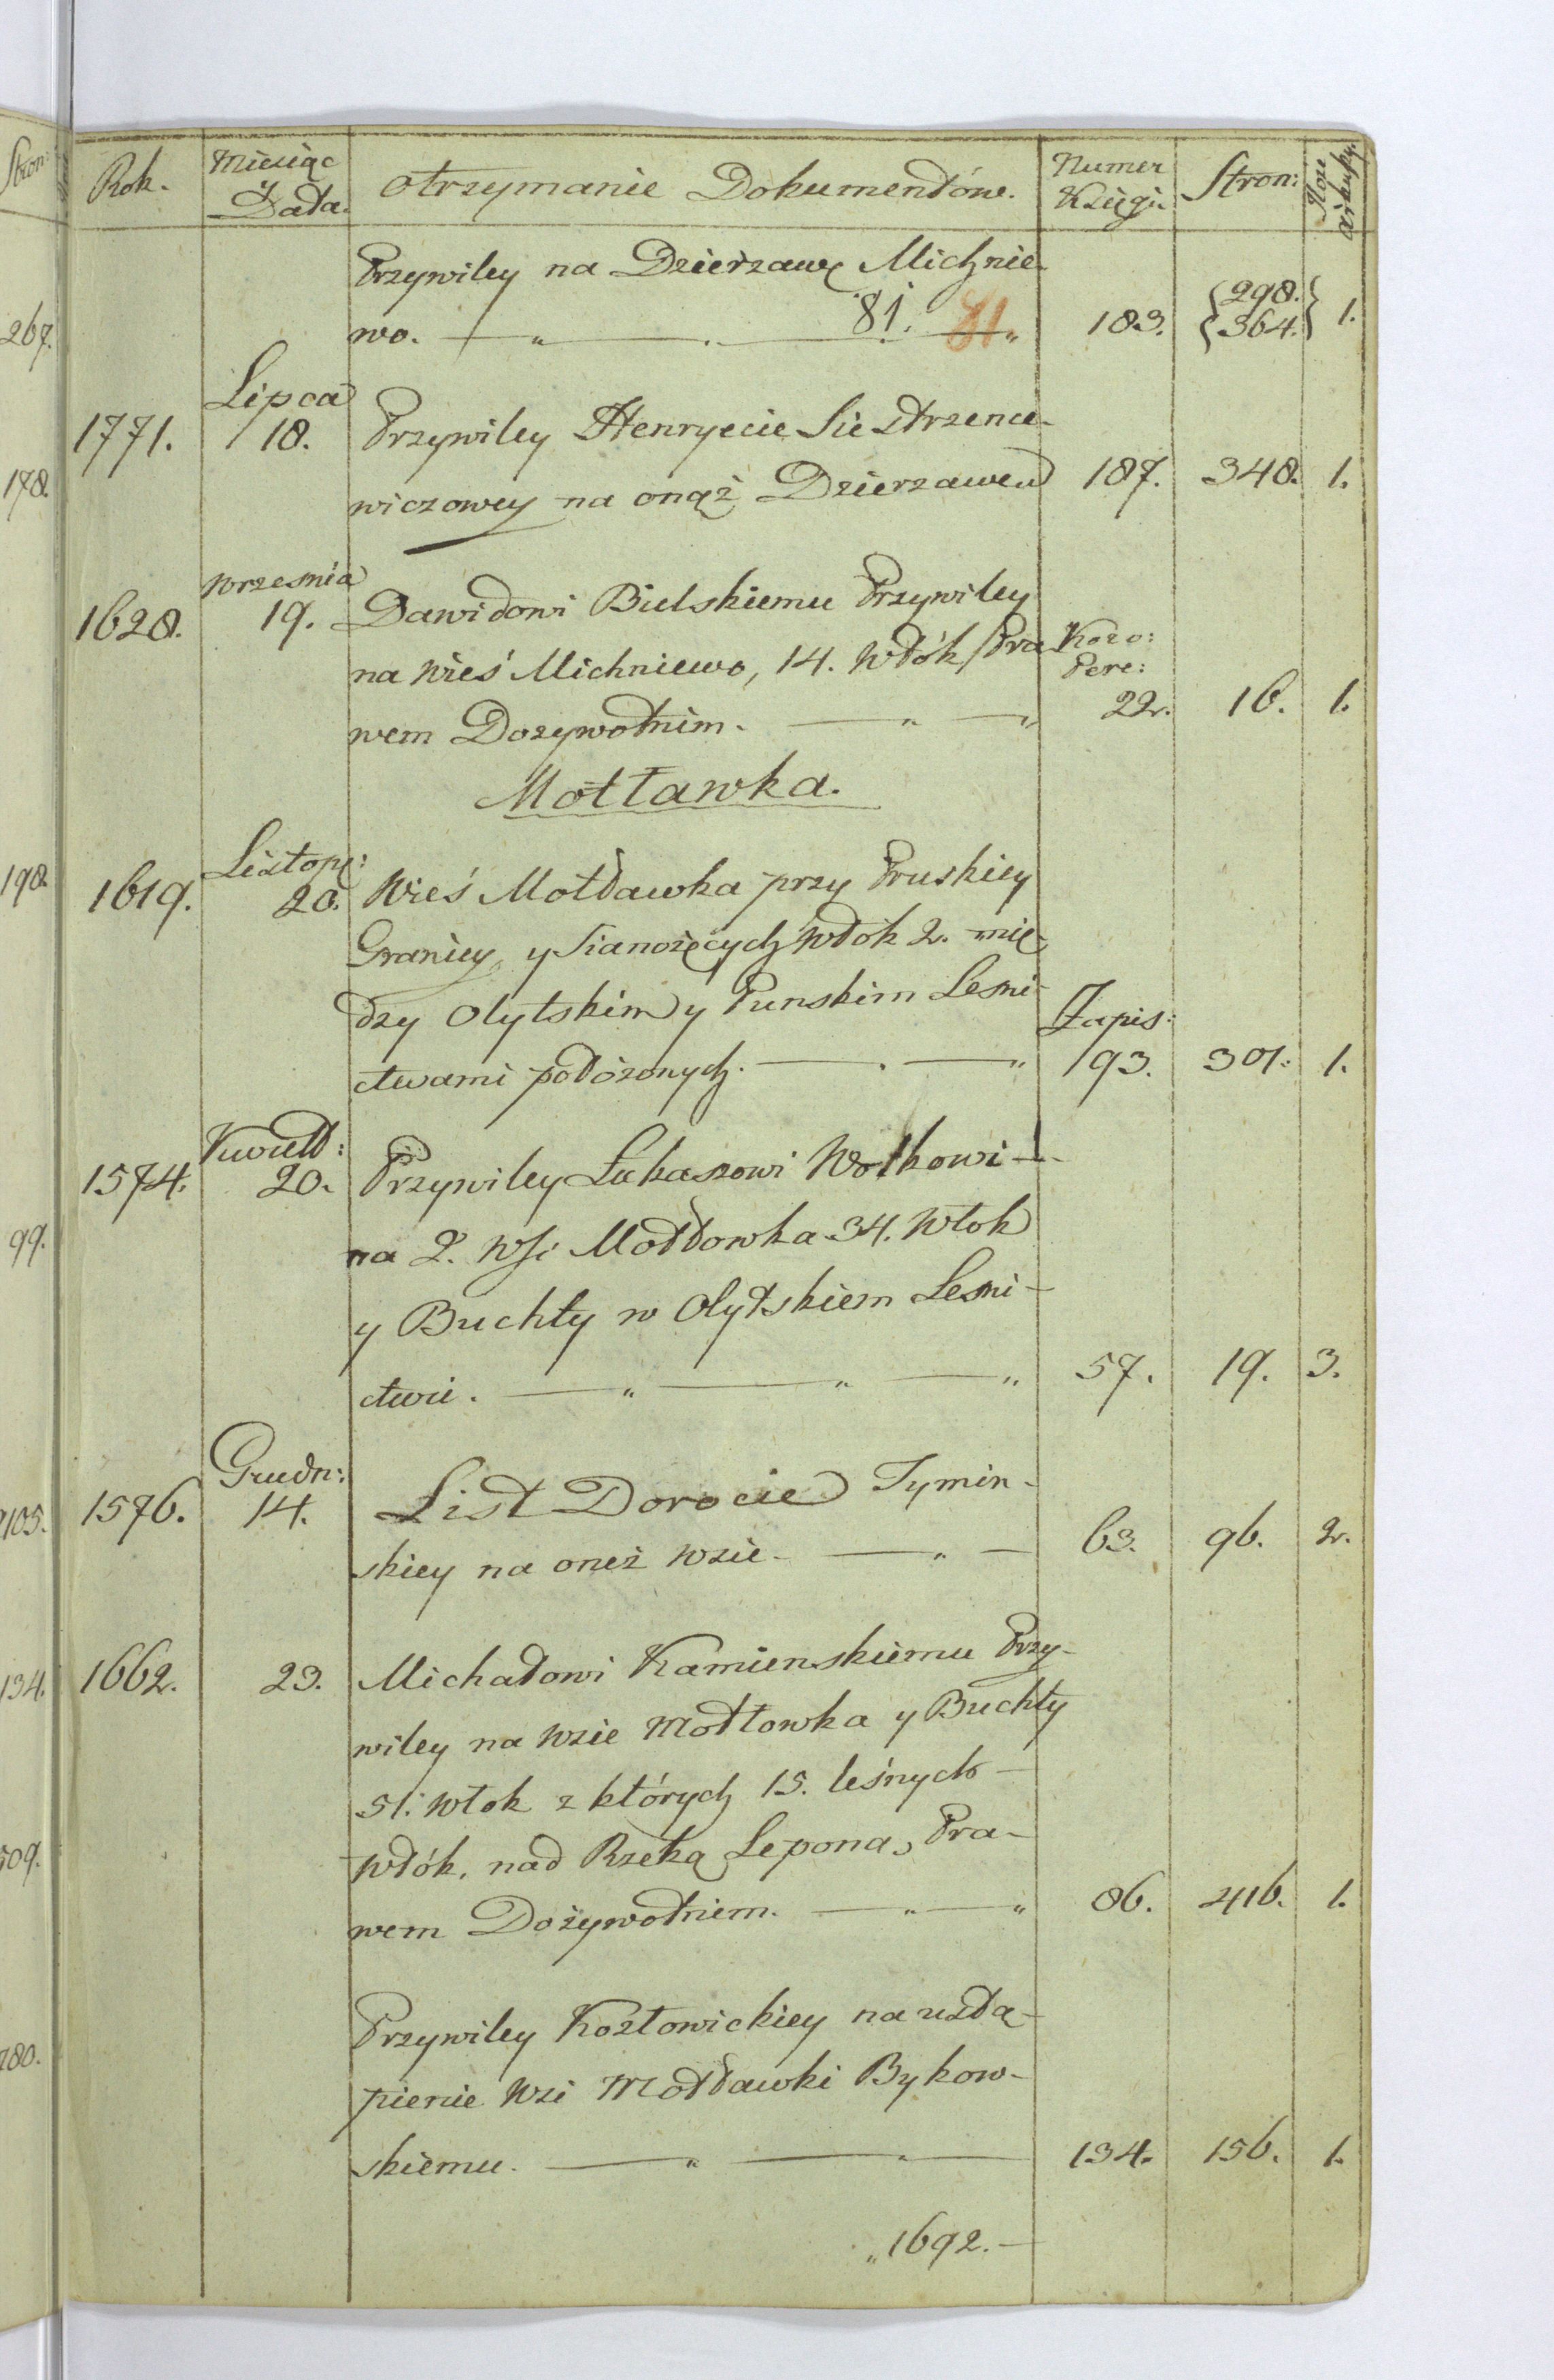 Rok. Miesiąc Data. Otrzymanie Dokumentów. Numer Księgi. Stron: Ilość arkuszy.
Przywiley na Dzierżawę Michnie-
wo. 81. 81 183. {298. 364.} 1.
1771. Lipca 18. Przywiley Henryecie Siestrzence-
wiczowey na onąż Dzierzawę 187. 348. 1.
1628. Wrzesnia 19. Dawidowi Bielskiemu Przywiley
na Wieś Michniewo, 14. Włók, Pra-
wem Dozywotnim. 22. 16. 1.
Mołtawka.
1619. Listop: 20. Wieś Mołtawka przy Pruskiey
Granicy, y Sianożęcych Włok 2. mię-
dzy Olytskim y Punskim Lesni-
ctwami położonych. Zapis: 193. 301. 1.
1574. Kwiet: 20. Przywiley Łukaszowi Wołkowi
na 2. Wsi Mołtowka 34. Włok
y Buchty w Olytskiem Lesni-
ctwie. 57. 19. 3.
1576. Grudn: 14. List Dorocie Tymin-
skiey na oneż Wsie. 63. 96. 2.
1662. 23. Michałowi Kamienskiemu Przy-
wiley na Wsie Mołtowka y Buchty
51. Włok z których 15. leśnych
Włók. nad Rzeką Lepona, Pra-
wem Dożywotniem. 86. 416. 1.
Przywiley Kozłowickiey na ustą-
pienie Wsi Mołtawki Bykow-
skiemu. 134. 156. 1.
1692.